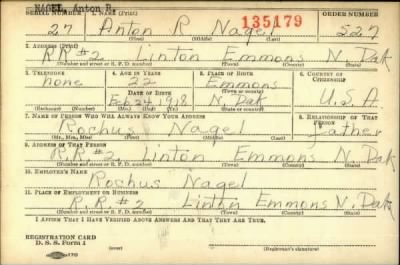 NAGEL, Anton R.
SERIAL NUMBER 1. NAME (Print) ORDER NUMBER
27 Anton R Nagel 135179 527
(First) (Middle) (Last)
2. ADDRESS (Print)
R.R.#2 Linton Emmons N. Dak
(Number and street or R. F. D. number) (Town) (County) (State)
3. TELEPHONE 4. AGE IN YEARS 5. PLACE OF BIRTH 6. COUNTRY OF CITIZENSHIP
none 22 Emmons
DATE OF BIRTH (Town or county)
Feb. 24 1918 N. Dak U.S.A
(Exchange) (Number) (Mo.) (Day) (Yr.) (State or country)
7. NAME OF PERSON WHO WILL ALWAYS KNOW YOUR ADDRESS 8. RELATIONSHIP OF THAT PERSON
Rochus Nagel Father
(Mr., Mrs., Miss) (First) (Middle) (Last)
9. ADDRESS OF THAT PERSON
R.R.#2 Linton Emmons N. Dak
(Number and street or R. F. D. number) (Town) (County) (State)
10. EMPLOYER'S NAME
Rochus Nagel
11. PLACE OF EMPLOYMENT OR BUSINESS
R.R.#2 Linton Emmons N. Dak
(Number and street or R. F. D. number) (Town) (County) (State)
I AFFIRM THAT I HAVE VERIFIED ABOVE ANSWERS AND THAT THEY ARE TRUE.
REGISTRATION CARD
D. S. S. Form 1
(Registrant's signature)